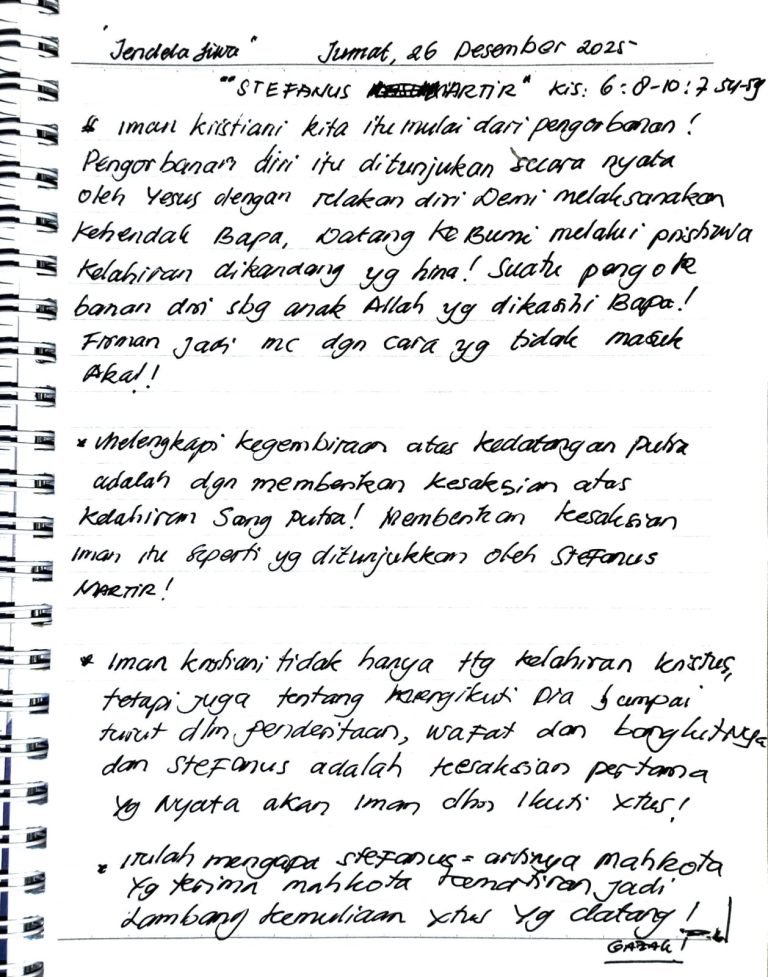 "Jendela Jiwa" Jumat, 26 Desember 2025
""STEFANUS MARTIR" Kis: 6:8-10:7 54-59
* Iman kristiani kita itu mulai dari pengorbanan!
Pengorbanan diri itu ditunjukan secara nyata
oleh Yesus dengan relakan diri Demi melaksanakan
Kehendak Bapa, Datang ke Bumi melalui peristiwa
Kelahiran dikandang yg hina! Suatu pengor
banan diri sbg anak Allah yg dikasihi Bapa!
Firman jadi mc dgn cara yg tidak masuk
Akal!
* Melengkapi kegembiraan atas kedatangan Putra
adalah dgn memberikan kesaksian atas
Kelahiran Sang Putra! Memberikan kesaksian
Iman itu seperti yg ditunjukkan oleh Stefanus
MARTIR!
* Iman kristiani tidak hanya ttg kelahiran kristus,
tetapi juga tentang mengikuti Dia sampai
turut dlm penderitaan, wafat dan bangkitNya
dan Stefanus adalah kesaksian pertama
yg Nyata akan Iman dlm Ikuti Xtus!
* Itulah mengapa Stefanus = artinya Mahkota
Yg terima mahkota kemartiran jadi
Lambang kemuliaan Xtus Yg datang!
GAZAK